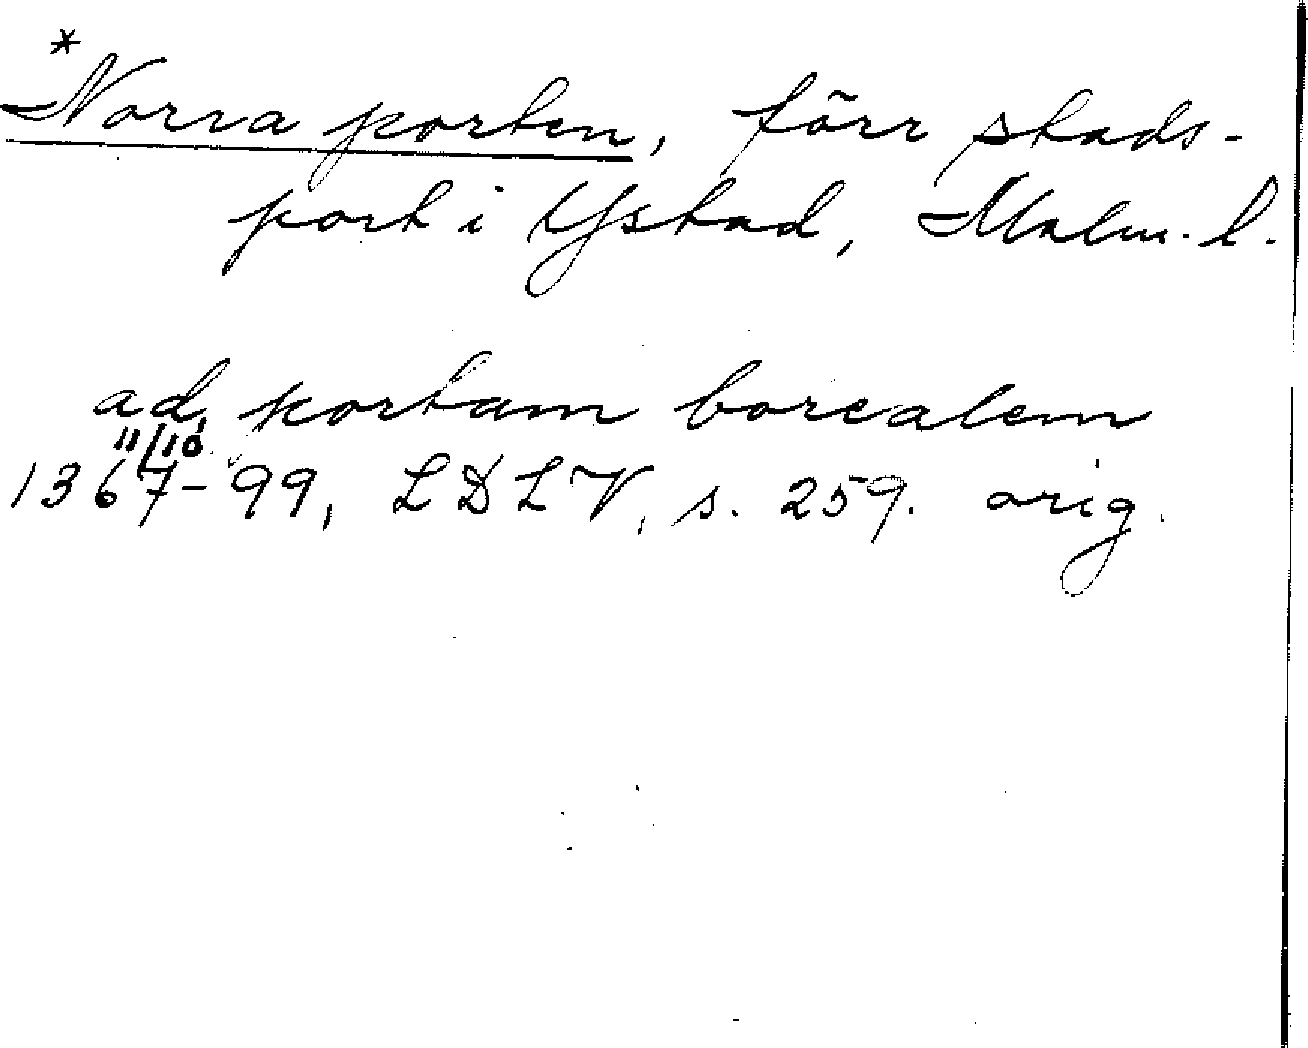 *Norra porten, förr stads-
port i Ystad, Malm. l.
ad portam borealem
11/10
1367-99, LDLV, s. 259. orig.